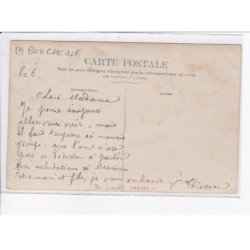 BOUCHERIE
80€
CARTE POSTALE
Tous les pays étrangers n'acceptent pas la correspondance au verso.
Correspondance
Adresse
Chère Madame
Je pense toujours
aller vous voir, mais
il fait toujours si mauvais
temps, que l'on n'ose
pas se décider à partir
Nos salutations à Messieurs
et fils, je vous embrasse